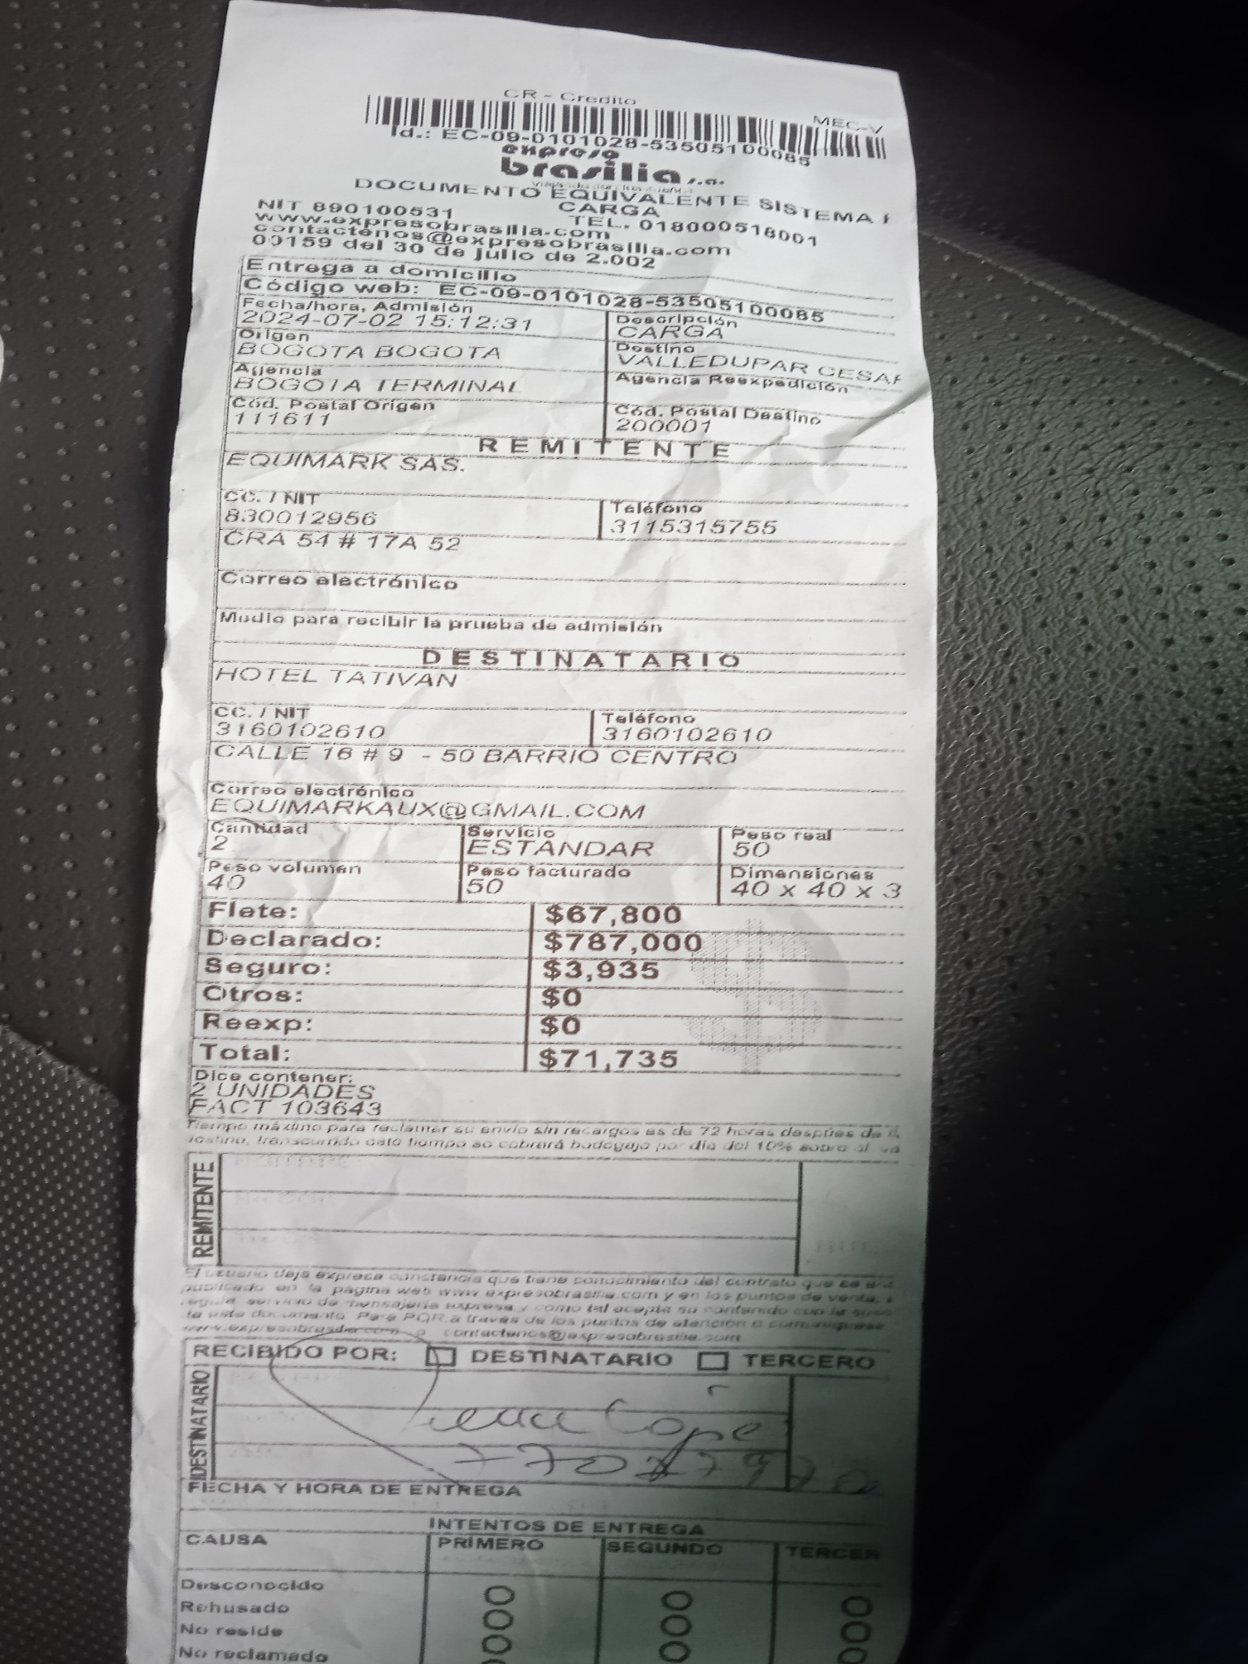 CR - Credito
MEC-V
Id.: EC-09-0101028-53505100085
expreso
brasilia s.a.
DOCUMENTO EQUIVALENTE SISTEMA
CARGA
NIT 890100531 TEL. 018000518001
www.expresobrasilia.com
contactenos@expresobrasilia.com
00159 del 30 de julio de 2.002
Entrega a domicilio
Código web: EC-09-0101028-53505100085
Fecha/hora, Admisión Descripción
2024-07-02 15:12:31 CARGA
Origen Destino
BOGOTA BOGOTA VALLEDUPAR CESAR
Agencia Agencia Reexpedición
BOGOTA TERMINAL
Cód. Postal Origen Cód. Postal Destino
111611 200001
REMITENTE
EQUIMARK SAS.
CC. / NIT Teléfono
830012956 3115315755
CRA 54 # 17A 52
Correo electrónico
Medio para recibir la prueba de admisión
DESTINATARIO
HOTEL TATIVAN
CC. / NIT Teléfono
3160102610 3160102610
CALLE 16 # 9 - 50 BARRIO CENTRO
Correo electrónico
EQUIMARKAUX@GMAIL.COM
Cantidad Servicio Peso real
2 ESTANDAR 50
Peso volumen Peso facturado Dimensiones
40 50 40 x 40 x 3
Flete: $67,800
Declarado: $787,000
Seguro: $3,935
Otros: $0
Reexp: $0
Total: $71,735
Dice contener:
2 UNIDADES
FACT 103643
Tiempo máximo para reclamar su envío sin recargos es de 72 horas después de
destino, transcurrido este tiempo se cobrará bodegaje por día del 10% sobre el va
REMITENTE
El usuario deja expresa constancia que tiene conocimiento del contrato que se
publicado en la página web www.expresobrasilia.com y en los puntos de venta,
regula servicio de mensajería expresa y como tal acepta su contenido con la
te este documento. Para PQR a través de los puntos de atención o comuníquese
www.expresobrasilia.com o contactenos@expresobrasilia.com
RECIBIDO POR: DESTINATARIO TERCERO
DESTINATARIO
FECHA Y HORA DE ENTREGA
INTENTOS DE ENTREGA
CAUSA PRIMERO SEGUNDO TERCER
Desconocido
Rehusado
No reside
No reclamado